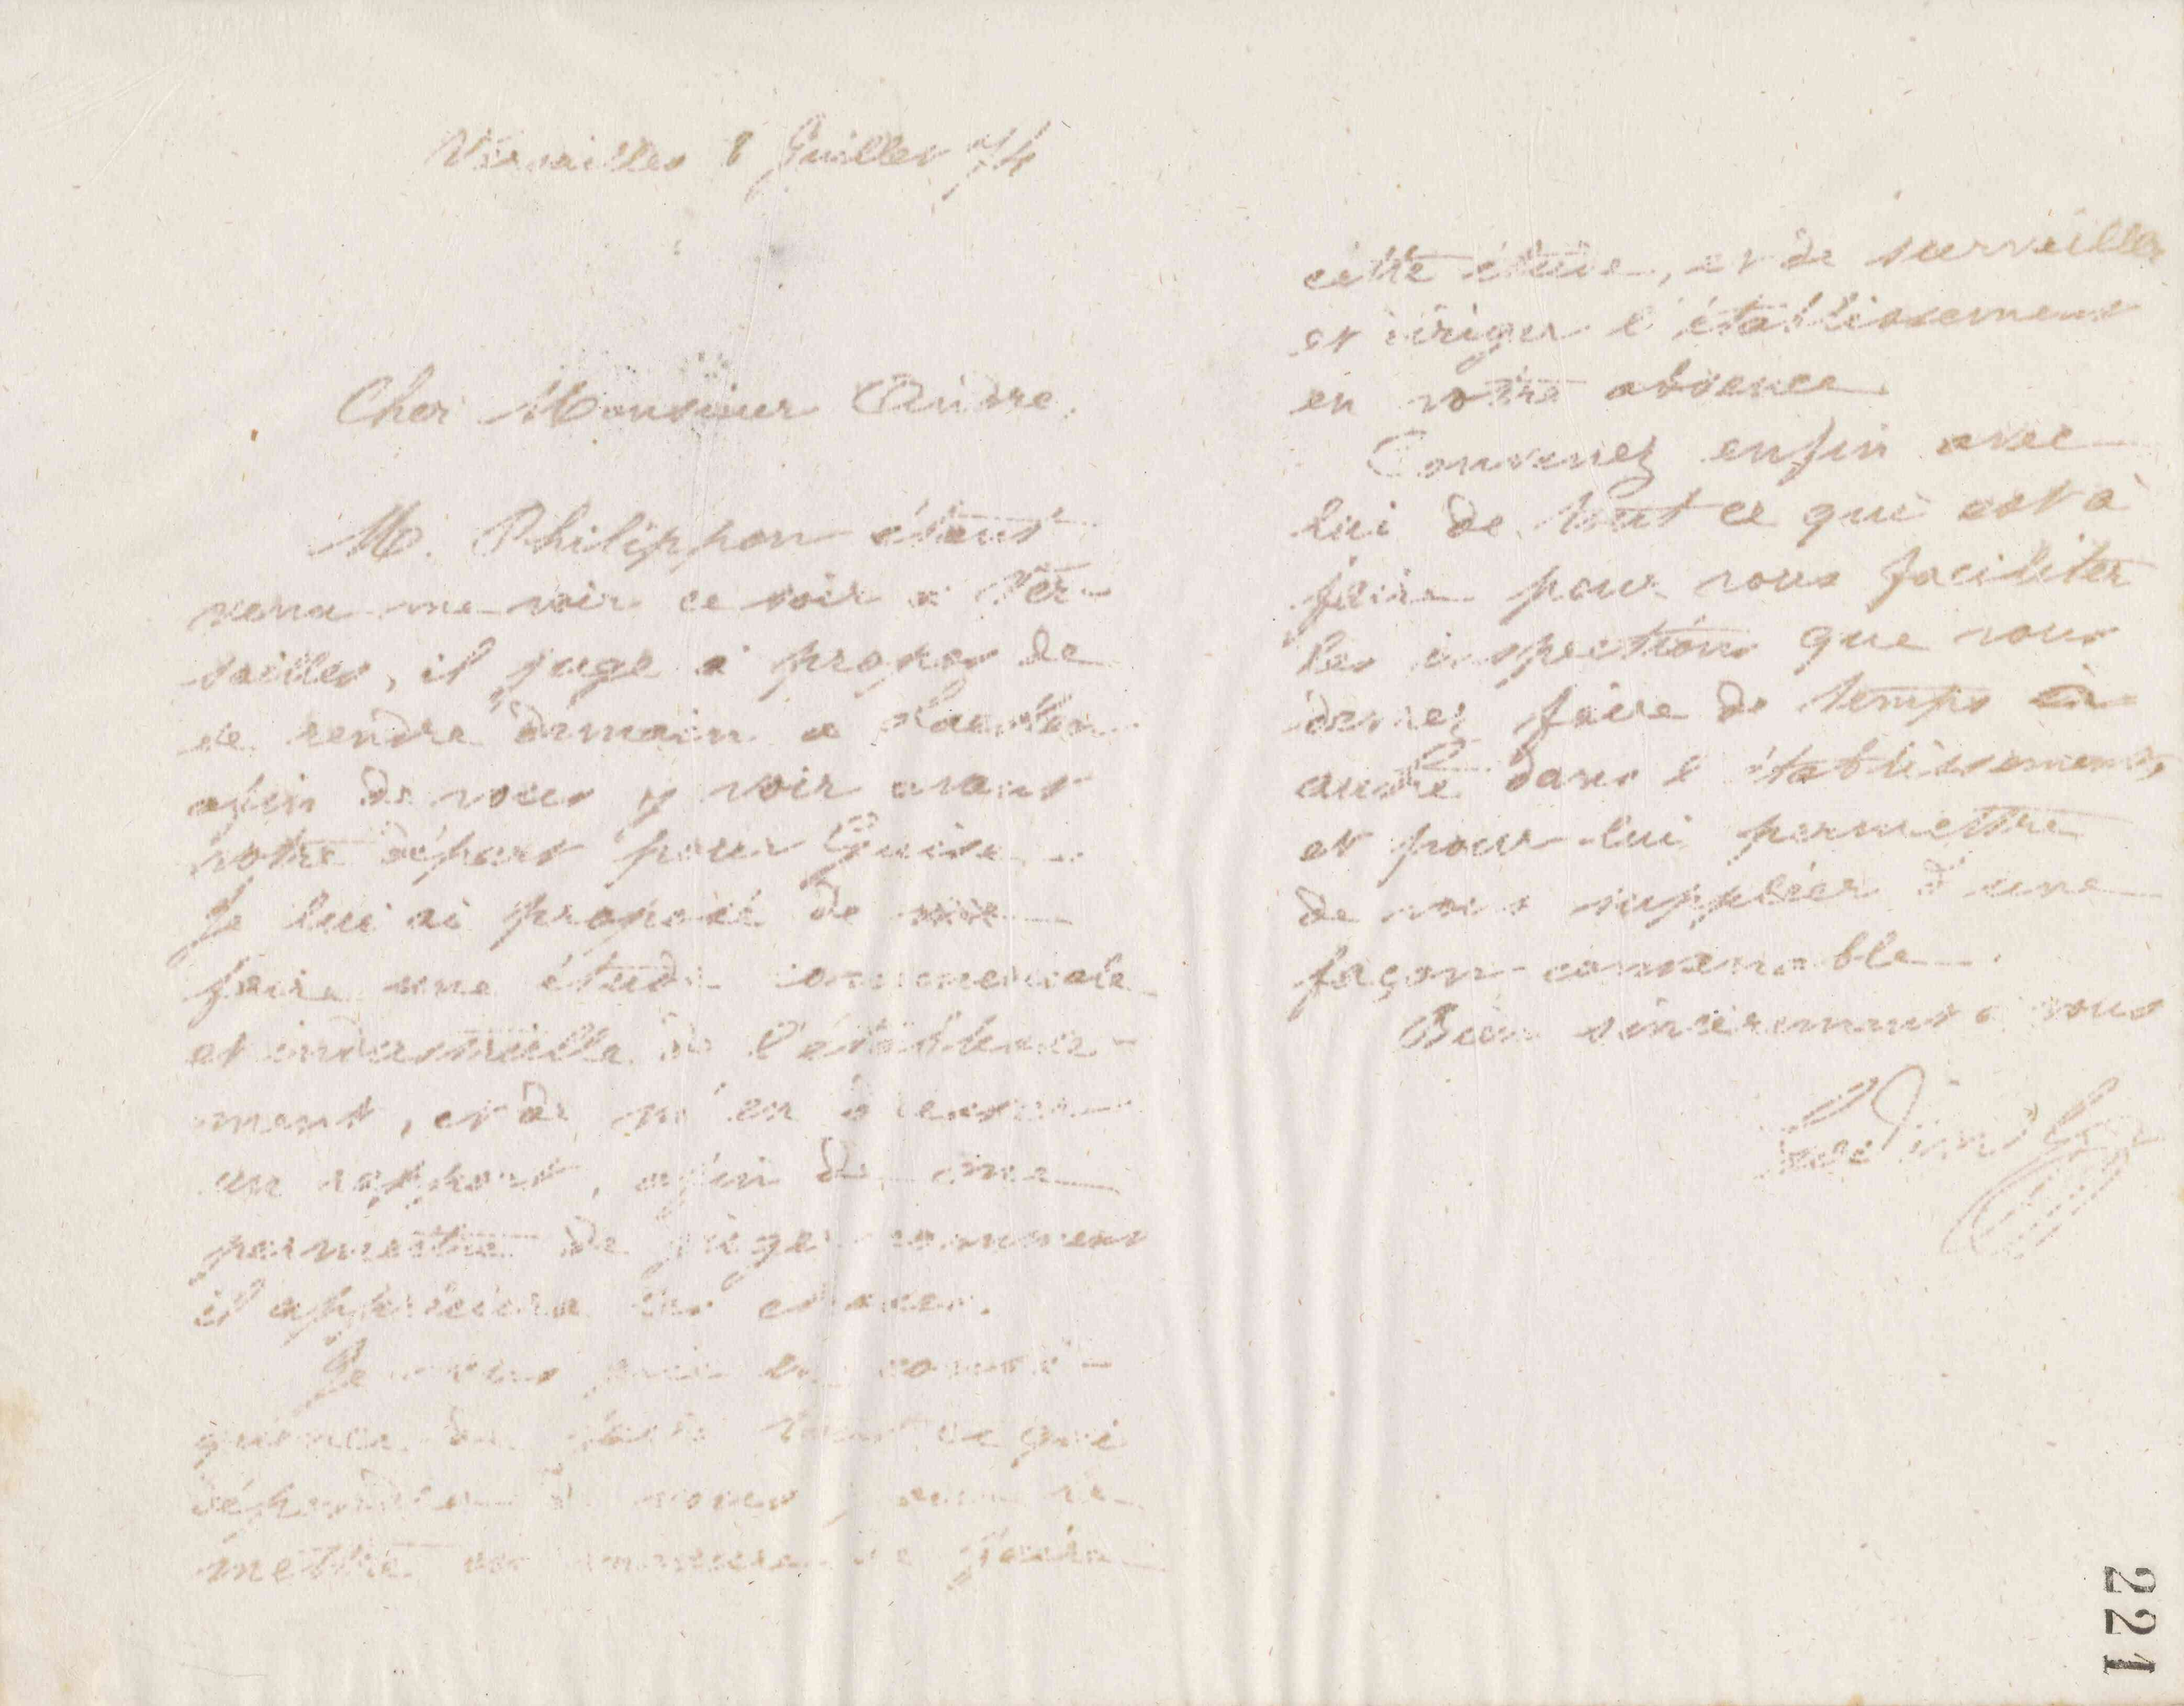 Versailles 8 Juillet 74
Cher Monsieur André,
M. Philippon étant
venu me voir ce soir a Ver-
sailles, il juge à propos de
se rendre demain a Laeken
afin de vous y voir avant
votre départ pour Guise.
Je lui ai proposé de
faire une étude commerciale
et industrielle de l'établisse-
ment, et de m'en dresser
un rapport, afin de me
permettre de juger comment
il appréciera les choses.
Je vous prie en consé-
quence de faire tout ce qui
dépendra de vous, pour le
mettre en mesure de faire
cette étude, et de surveiller
et diriger l'établissement
en votre absence.
Convenez enfin avec
lui de tout ce qui est à
faire pour vous faciliter
les inspections que vous
devrez faire de temps à
autre dans l'établissement,
et pour lui permettre
de vous suppléer d'une
façon convenable.
Bien sincèrement a vous
221